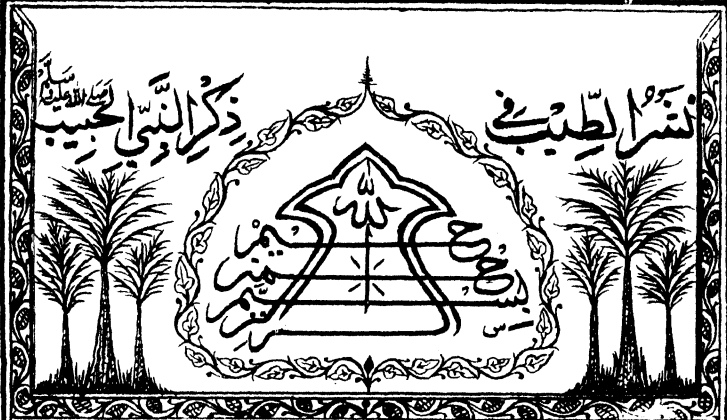 نَشْرُ الطِّیْبِ فِیْ ذِکْرِ النَّبِیِّ الْحَبِیْبِ صَلَّی اللّٰہُ عَلَیْہِ وَسَلَّمَ
بسم الله الرحمن الرحيم